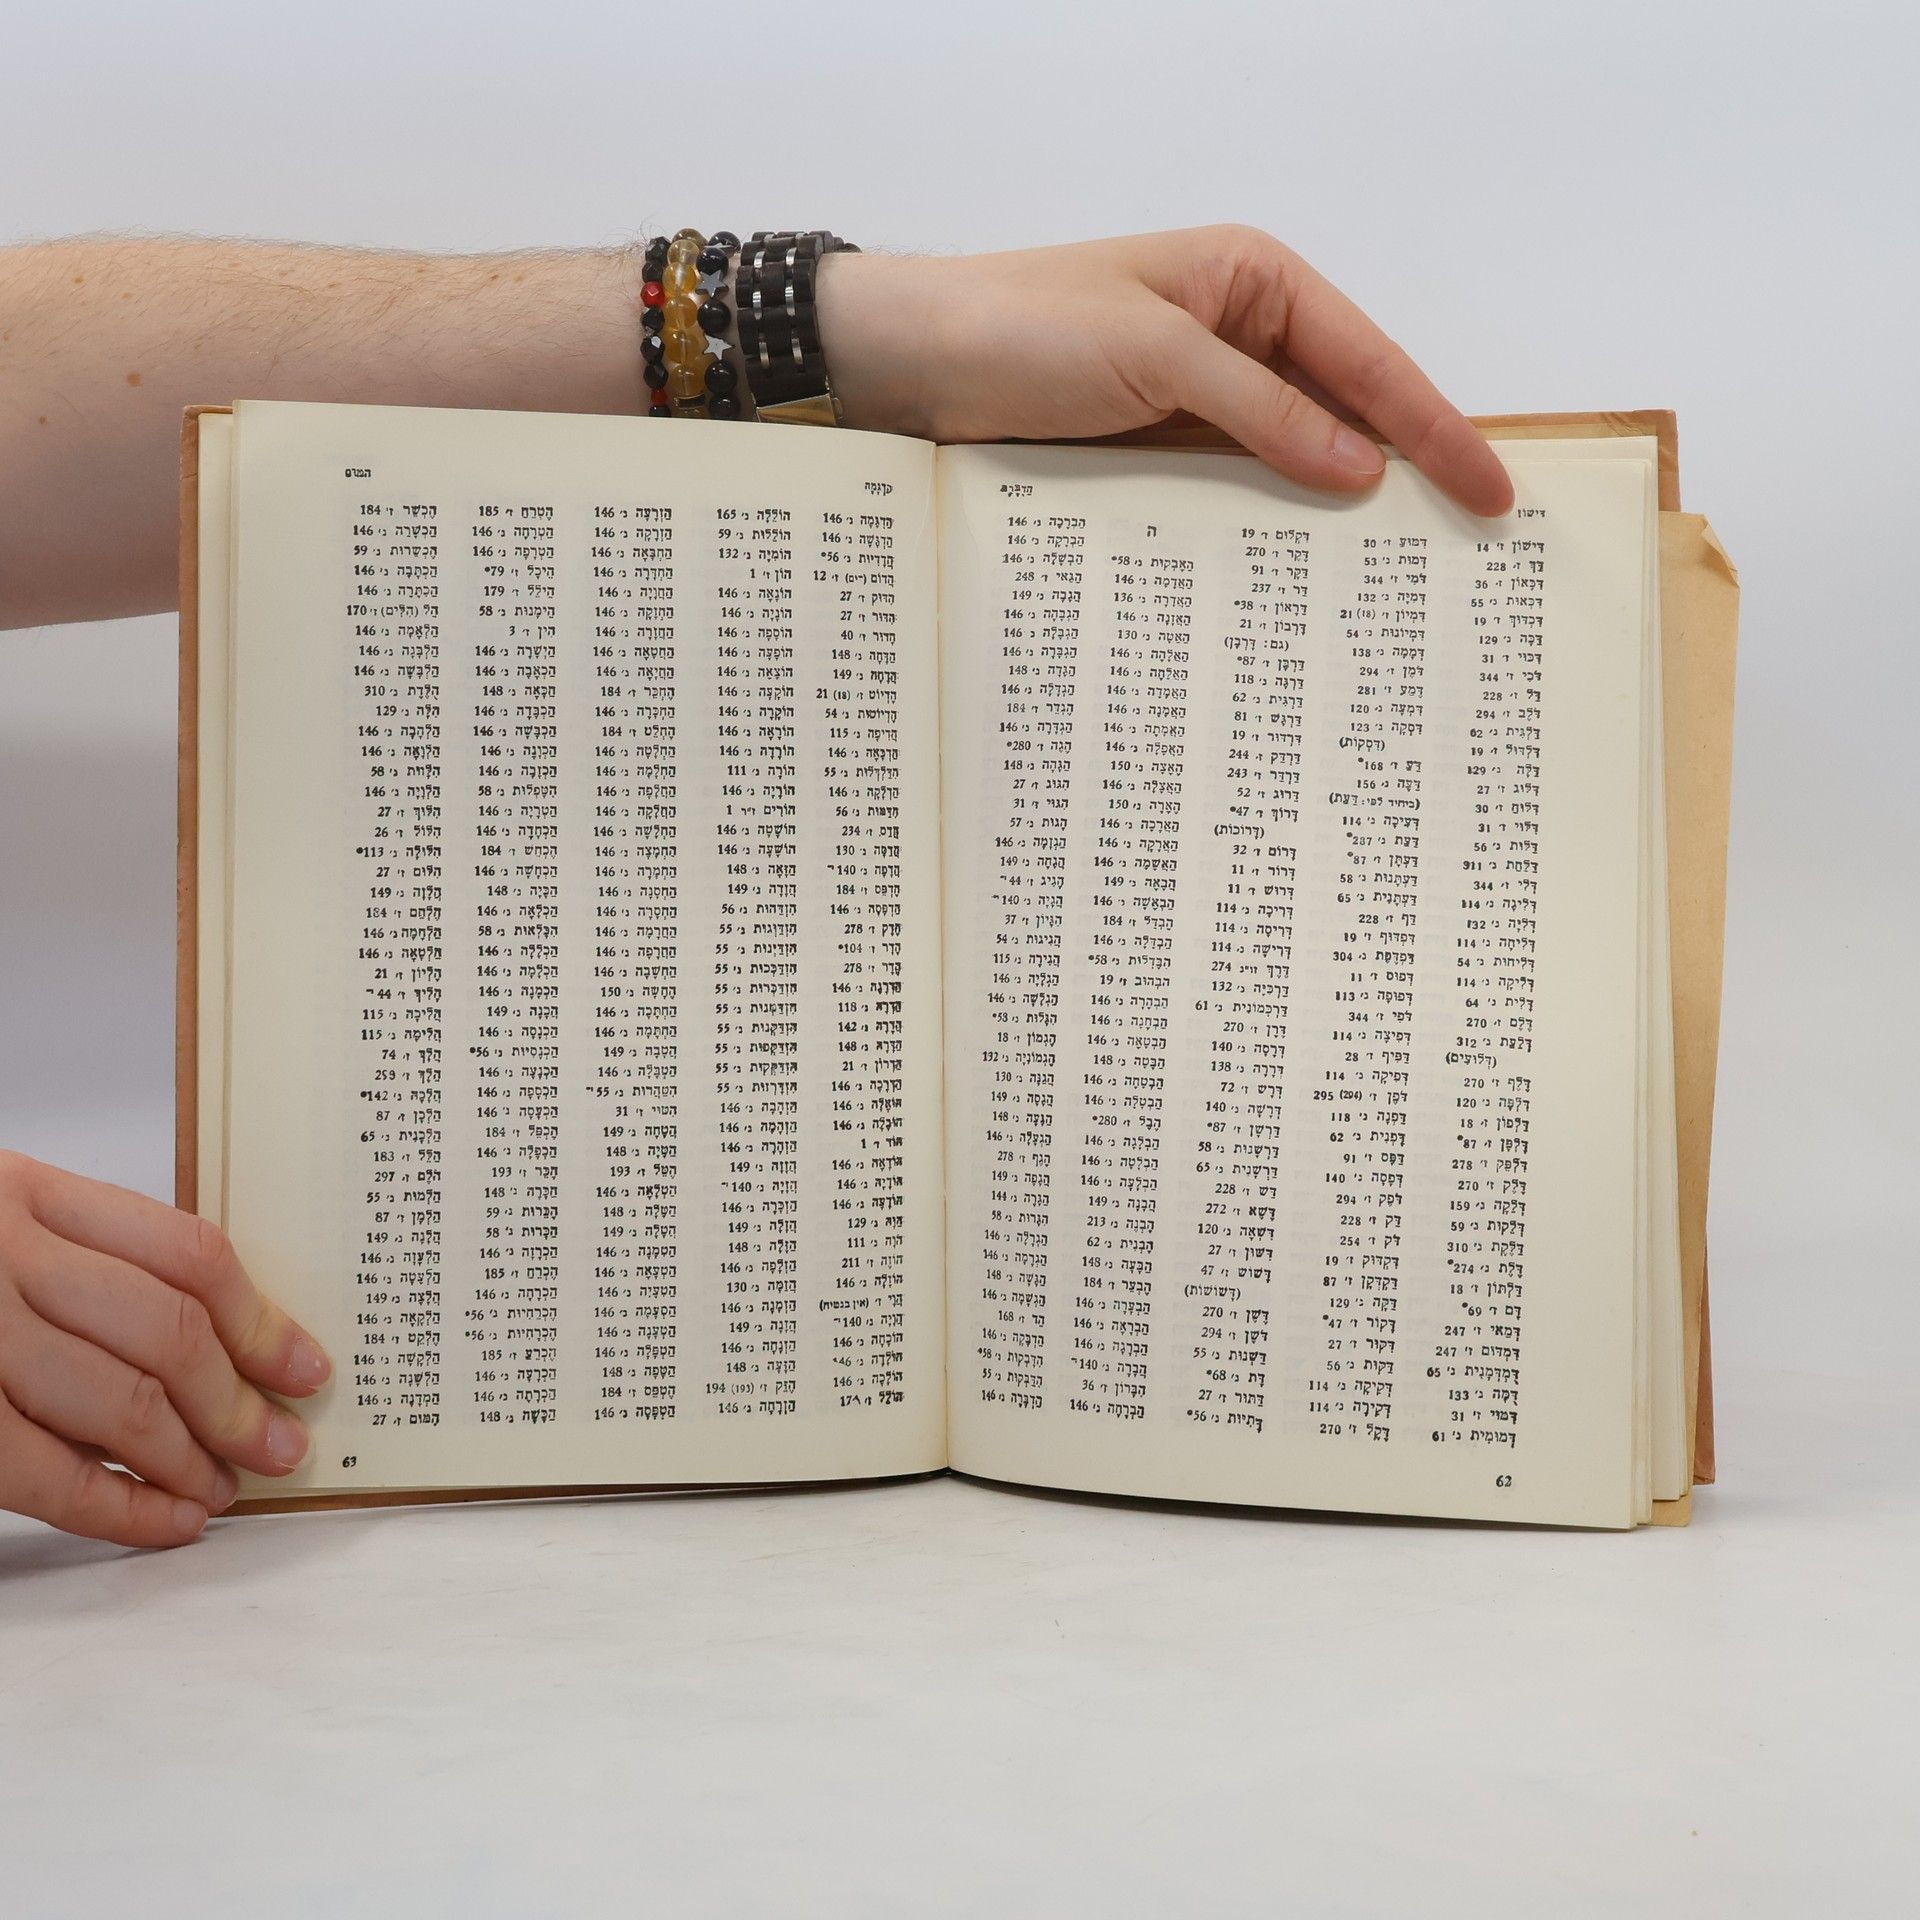 דישון
הַדְבָּרָה
דִּישׁוֹן ז׳ 14
דַּךְ ז׳ 228
דִּכָּאוֹן ז׳ 36
דַּכָּאוּת נ׳ 55
דִּכְדּוּךְ ז׳ 19
דַּכָּה נ׳ 129
דִּכּוּי ז׳ 31
דֳּכִי ז׳ 344
דַּל ז׳ 228
דֹּלֶב ז׳ 294
דַּלְגִּית נ׳ 62
דִּלְדּוּל ז׳ 19
דַּלָּה נ׳ 129
דִּלּוּג ז׳ 27
דִּלּוּחַ ז׳ 30
דִּלּוּי ז׳ 31
דַּלּוּת נ׳ 56
דַּלַּחַת נ׳ 311
דְּלִי ז׳ 344
דְּלִיגָה נ׳ 114
דָּלִיָּה נ׳ 132
דְּלִיחָה נ׳ 114
דְּלִיחוּת נ׳ 54
דְּלִיקָה נ׳ 114
דָּלִית נ׳ 64
דֶּלֶם ז׳ 270
דְּלַעַת נ׳ 312
(דְּלוּעִים)
דֶּלֶף ז׳ 270
דִּלְפָה נ׳ 120
דִּלָּפוֹן ז׳ 18
דֻּלְפָּן ז׳ 87*
דֶּלְפֵּק ז׳ 278
דֶּלֶק ז׳ 270
דְּלֵקָה נ׳ 159
דְּלִקוּת נ׳ 59
דַּלֶּקֶת נ׳ 310
דֶּלֶת נ׳ 274*
דַּלְתּוֹן ז׳ 18
דָּם ז׳ 69*
דְּמַאי ז׳ 247
דִּמְדּוּם ז׳ 247
דֻּמְדְּמָנִית נ׳ 65
דֻּמָּה נ׳ 133
דִּמּוּי ז׳ 31
דְּמוּמִית נ׳ 61
דִּמּוּעַ ז׳ 30
דְּמוּת נ׳ 53
דֳּמִי ז׳ 344
דְּמִיָּה נ׳ 132
דִּמְיוֹן ז׳ (18) 21
דִּמְיוֹנוּת נ׳ 54
דְּמָמָה נ׳ 138
דֹּמֶן ז׳ 294
דֶּמַע ז׳ 281
דִּמְעָה נ׳ 120
דִּסְקָה נ׳ 123
(דִּסְקוֹת)
דֵּעַ ז׳ 168*
דֵּעָה נ׳ 156
(ביחיד לפי: דַּעַת)
דְּעִיכָה נ׳ 114
דַּעַת נ׳ 287*
דַּעְתָּן ז׳ 87*
דַּעְתָּנוּת נ׳ 58
דַּעְתָּנִית נ׳ 65
דַּף ז׳ 228
דִּפְדּוּף ז׳ 19
דַּפְדֶּפֶת נ׳ 304
דְּפוּס ז׳ 11
דְּפוּפָה נ׳ 113
דֳּפִי ז׳ 344
דְּפִיצָה נ׳ 114
דַּפִּיף ז׳ 28
דְּפִיקָה נ׳ 114
דֹּפֶן ז׳ (294) 295
דַּפְנָה נ׳ 118
דָּפְנִית נ׳ 62
דַּפָּס ז׳ 91
דְּפָסָה נ׳ 140
דֹּפֶק ז׳ 294
דַּק ז׳ 228
דֹּק ז׳ 254
דִּקְדּוּק ז׳ 19
דַּקְדְּקָן ז׳ 87
דַּקָּה נ׳ 129
דָּקוֹר ז׳ 47*
דִּקּוּר ז׳ 27
דַּקּוּת נ׳ 56
דְּקִיקָה נ׳ 114
דְּקִירָה נ׳ 114
דֶּקֶל ז׳ 270
דִּקְלוּם ז׳ 19
דֶּקֶר ז׳ 270
דַּקָּר ז׳ 91
דַּר ז׳ 237
דֵּרָאוֹן ז׳ 38*
דָּרְבוֹן ז׳ 21
(גם: דָּרְבָן)
דַּרְבָּן ז׳ 87*
דַּרְגָּה נ׳ 118
דַּרְגִּית נ׳ 62
דַּרְגָּשׁ ז׳ 81
דִּרְדּוּר ז׳ 19
דַּרְדַּק ז׳ 244
דַּרְדַּר ז׳ 243
דֵּרוּג ז׳ 52
דָּרוֹךְ ז׳ 47*
(דָּרוֹכוֹת)
דָּרוֹם ז׳ 32
דְּרוֹר ז׳ 11
דְּרוּשׁ ז׳ 11
דְּרִיכָה נ׳ 114
דְּרִיסָה נ׳ 114
דְּרִישָׁה נ׳ 114
דֶּרֶךְ זו״נ 274
דַּרְכִּיָּה נ׳ 132
דַּרְכְּמוֹנִית נ׳ 61
דֶּרֶן ז׳ 270
דְּרָסָה נ׳ 140
דְּרָרָה נ׳ 138
דְּרָשׁ ז׳ 72
דְּרָשָׁה נ׳ 140
דַּרְשָׁן ז׳ 87*
דַּרְשָׁנוּת נ׳ 58
דַּרְשָׁנִית נ׳ 65
דַּשׁ ז׳ 228
דֶּשֶׁא ז׳ 272
דִּשְׁאָה נ׳ 120
דִּשּׁוּן ז׳ 27
דָּשׁוֹשׁ ז׳ 47
(דָּשׁוֹשׁוֹת)
דֶּשֶׁן ז׳ 270
דֹּשֶׁן ז׳ 294
דַּשְּׁנוּת נ׳ 55
דָּת נ׳ 68*
דִּתּוּר ז׳ 27
דָּתִיּוּת נ׳ 56*
ה
הַאֲבָקוּת נ׳ 58*
הַאְדָּמָה נ׳ 146
הַאֲדָרָה נ׳ 136
הַאֲזָנָה נ׳ 146
הַאָטָה נ׳ 130
הַאֲלָהָה נ׳ 146
הַאֲלָחָה נ׳ 146
הַאֲמָדָה נ׳ 146
הַאֲמָנָה נ׳ 146
הַאֲמָתָה נ׳ 146
הַאֲפָלָה נ׳ 146
הֶאָצָה נ׳ 150
הַאֲצָלָה נ׳ 146
הֶאָרָה נ׳ 150
הַאֲרָכָה נ׳ 146
הַאֲרָקָה נ׳ 146
הַאֲשָׁמָה נ׳ 146
הֲבָאָה נ׳ 149
הַבְאָשָׁה נ׳ 146
הֶבְדֵּל ז׳ 184
הַבְדָּלָה נ׳ 146
הִבָּדְלוּת נ׳ 58*
הִבְהוּב ז׳ 19
הַבְהָרָה נ׳ 146
הַבְחָנָה נ׳ 146
הַבְטָאָה נ׳ 146
הַבָּטָה נ׳ 148
הַבְטָחָה נ׳ 146
הַבְטָלָה נ׳ 146
הֶבֶל ז׳ 280*
הַבְלָגָה נ׳ 146
הַבְלָטָה נ׳ 146
הַבְלָעָה נ׳ 146
הֲבָנָה נ׳ 149
הָבְנֶה נ׳ 213
הָבְנִית נ׳ 62
הַבָּעָה נ׳ 148
הֶבְעֵר ז׳ 184
הַבְעָרָה נ׳ 146
הַבְרָאָה נ׳ 146
הַבְרָגָה נ׳ 146
הֲבָרָה נ׳ 140־
הַבָּרוֹן ז׳ 36
הַבְרָחָה נ׳ 146
הַבְרָכָה נ׳ 146
הַבְרָקָה נ׳ 146
הַבְשָׁלָה נ׳ 146
הַגַּאי ז׳ 248
הֲגָבָה נ׳ 149
הַגְבָּהָה נ׳ 146
הַגְבָּלָה נ׳ 146
הַגְבָּרָה נ׳ 146
הַגָּדָה נ׳ 148
הַגְדָּלָה נ׳ 146
הֶגְדֵּר ז׳ 184
הַגְדָּרָה נ׳ 146
הֶגֶה ז׳ 280*
הַגָּהָה נ׳ 148
הִגּוּג ז׳ 27
הִגּוּי ז׳ 31
הָגוּת נ׳ 57
הַגְזָמָה נ׳ 146
הֲגָחָה נ׳ 149
הָגִיג ז׳ 44־
הֲגִיָּה נ׳ 140־
הִגָּיוֹן ז׳ 37
הֲגִינוּת נ׳ 54
הֲגִירָה נ׳ 115
הַגְלָיָה נ׳ 146
הַגְלָשָׁה נ׳ 146
הִגָּלוּת נ׳ 58*
הֶגְמוֹן ז׳ 18
הֶגְמוֹנְיָה נ׳ 132
הֲגַנָּה נ׳ 130
הֲגָסָה נ׳ 149
הַגָּעָה נ׳ 148
הַגְעָלָה נ׳ 146
הֶגֶף ז׳ 278
הֲגָפָה נ׳ 149
הַגָּרָה נ׳ 144
הִגָּרוּת נ׳ 58
הַגְרָלָה נ׳ 146
הַגְרָמָה נ׳ 146
הַגָּשָׁה נ׳ 148
הַגְשָׁמָה נ׳ 146
הֵד ז׳ 168
הַדְבָּקָה נ׳ 146
הִדָּבְקוּת נ׳ 58*
הַדַּבְּקוּת נ׳ 55
הַדְבָּרָה נ׳ 146
62
הַדְגָּמָה
המום
הַדְגָּמָה נ׳ 146
הַדְגָּשָׁה נ׳ 146
הֲדָדִיּוּת נ׳ 56*
הֲדוֹם (־ים) ז׳ 12
הִדּוּק ז׳ 27
הִדּוּר ז׳ 27
הָדוּר ז׳ 40
הַדָּחָה נ׳ 148
הֲדָחָה נ׳ 149
הֶדְיוֹט ז׳ (18) 21
הֶדְיוֹטוּת נ׳ 54
הֲדִיפָה נ׳ 115
הַדְכָּאָה נ׳ 146
הִדַּלְדְּלוּת נ׳ 55
הַדְלָקָה נ׳ 146
הִדַּמּוּת נ׳ 56
הֲדַס ז׳ 234
הֲדַסָּה נ׳ 130
הֲדָפָה נ׳ 140־
הֶדְפֵּס ז׳ 184
הַדְפָּסָה נ׳ 146
הֶדֶק ז׳ 278
הָדָר ז׳ 104*
הֶדֶר ז׳ 278
הַדְרָגָה נ׳ 146
הַדְרָה נ׳ 118
הֲדָרָה נ׳ 142
הַדָּרָה נ׳ 148
הִדָּרוֹן ז׳ 21
הַדְרָכָה נ׳ 146
הוֹאָלָה נ׳ 146
הוֹבָלָה נ׳ 146
הוֹד ז׳ 1
הוֹדָאָה נ׳ 146
הוֹדָיָה נ׳ 146
הוֹדָעָה נ׳ 146
הַוָּה נ׳ 129
הֹוָה נ׳ 111
הֹוֶה ז׳ 211
הוֹזָלָה נ׳ 146
הֲוַי ז׳ (אין בנטיה)
הֲוָיָה נ׳ 140־
הוֹכָחָה נ׳ 146
הוֹלָדָה נ׳ 146
הוֹלָכָה נ׳ 146
הוֹלֵל ז׳ 17
הוֹלֵלָה נ׳ 165
הוֹלֵלוּת נ׳ 59
הוֹמִיָּה נ׳ 132
הוֹן ז׳ 1
הוֹנָאָה נ׳ 146
הוֹנָיָה נ׳ 146
הוֹסָפָה נ׳ 146
הוֹפָעָה נ׳ 146
הוֹצָאָה נ׳ 146
הוֹקָעָה נ׳ 146
הוֹקָרָה נ׳ 146
הוֹרָאָה נ׳ 146
הוֹרָדָה נ׳ 146
הוֹרָה נ׳ 111
הוֹרָיָה נ׳ 146
הוֹרִים ז״ר 1
הוֹשָׁטָה נ׳ 146
הוֹשָׁעָה נ׳ 146
הַזָּאָה נ׳ 148
הֲזָדָה נ׳ 149
הִזְדַּהוּת נ׳ 56
הִזְדַּוְּגוּת נ׳ 55
הִזְדַּיְּנוּת נ׳ 55
הִזְדַּכְּכוּת נ׳ 55
הִזְדַּכְּרוּת נ׳ 55
הִזְדַּמְּנוּת נ׳ 55
הִזְדַּקְּנוּת נ׳ 55
הִזְדַּקְּפוּת נ׳ 55
הִזְדַּקְּקוּת נ׳ 55
הִזְדָּרְזוּת נ׳ 55
הַזְהָבָה נ׳ 146
הַזְהָמָה נ׳ 146
הַזְהָרָה נ׳ 146
הֲזָזָה נ׳ 149
הֲזָיָה נ׳ 140־
הַזְכָּרָה נ׳ 146
הֲזָלָה נ׳ 149
הַזָּלָה נ׳ 148
הַזְלָפָה נ׳ 146
הֲזַמָּה נ׳ 130
הַזְמָנָה נ׳ 146
הֲזָנָה נ׳ 149
הַזְנָחָה נ׳ 146
הַזָּעָה נ׳ 148
הֶזֵּק ז׳ (193) 194
הַזְרָחָה נ׳ 146
הַזְרָעָה נ׳ 146
הַזְרָקָה נ׳ 146
הַחְבָּאָה נ׳ 146
הַחְדָּרָה נ׳ 146
הַחְוָיָה נ׳ 146
הַחְזָקָה נ׳ 146
הַחְזָרָה נ׳ 146
הַחְטָאָה נ׳ 146
הַחְיָאָה נ׳ 146
הֶחְכֵּר ז׳ 184
הַחְכָּרָה נ׳ 146
הֶחְלֵט ז׳ 184
הַחְלָטָה נ׳ 146
הַחְלָמָה נ׳ 146
הַחְלָפָה נ׳ 146
הַחְלָקָה נ׳ 146
הַחְלָשָׁה נ׳ 146
הַחְמָצָה נ׳ 146
הַחְמָרָה נ׳ 146
הַחְסָנָה נ׳ 146
הַחְסָרָה נ׳ 146
הַחְרָמָה נ׳ 146
הַחְרָפָה נ׳ 146
הַחְשָׁבָה נ׳ 146
הֶחָשָׁה נ׳ 150
הַחְתָּכָה נ׳ 146
הַחְתָּמָה נ׳ 146
הֲטָבָה נ׳ 149
הַטְבָּלָה נ׳ 146
הִטַּהֲרוּת נ׳ 55־
הִטּוּי ז׳ 31
הֲטָחָה נ׳ 149
הַטָּיָה נ׳ 148
הֶטֵּל ז׳ 193
הַטְלָאָה נ׳ 146
הַטָּלָה נ׳ 148
הֲטָלָה נ׳ 149
הַטְמָנָה נ׳ 146
הַטְעָאָה נ׳ 146
הַטְעָיָה נ׳ 146
הַטְעָמָה נ׳ 146
הַטְעָנָה נ׳ 146
הַטְפָּלָה נ׳ 146
הַטָּפָה נ׳ 148
הֶטְפֵּס ז׳ 184
הַטְפָּסָה נ׳ 146
הֶטְרֵחַ ז׳ 185
הַטְרָחָה נ׳ 146
הַטְרָפָה נ׳ 146
הֵיכָל ז׳ 79*
הֵילֵל ז׳ 179
הֵימָנוּת נ׳ 58
הִין ז׳ 3
הַיְשָׁרָה נ׳ 146
הַכְאָבָה נ׳ 146
הַכָּאָה נ׳ 148
הַכְבָּדָה נ׳ 146
הַכְבָּשָׁה נ׳ 146
הַכְוָנָה נ׳ 146
הַכְזָבָה נ׳ 146
הִטָּפְלוּת נ׳ 58
הַטְרָיָה נ׳ 146
הַכְחָדָה נ׳ 146
הֶכְחֵשׁ ז׳ 184
הַכְחָשָׁה נ׳ 146
הַכָּיָה נ׳ 148
הַכְלָאָה נ׳ 146
הִכָּלְאוּת נ׳ 58
הַכְלָלָה נ׳ 146
הַכְלָמָה נ׳ 146
הַכְמָנָה נ׳ 146
הֲכָנָה נ׳ 149
הַכְנָסָה נ׳ 146
הַכְנָסִיּוּת נ׳ 56*
הַכְנָעָה נ׳ 146
הַכְסָפָה נ׳ 146
הַכְעָסָה נ׳ 146
הֶכְפֵּל ז׳ 184
הַכְפָּלָה נ׳ 146
הֶכֵּר ז׳ 193
הַכָּרָה נ׳ 148
הַכָּרוּת נ׳ 59
הִכָּרוּת נ׳ 58
הַכְרָזָה נ׳ 146
הֶכְרֵחַ ז׳ 185
הַכְרָחָה נ׳ 146
הֶכְרֵחִיּוּת נ׳ 56*
הֶכְרָחִיּוּת נ׳ 56*
הֶכְרֵעַ ז׳ 185
הַכְרָעָה נ׳ 146
הַכְרָתָה נ׳ 146
הַכָּשָׁה נ׳ 148
הֶכְשֵׁר ז׳ 184
הַכְשָׁרָה נ׳ 146
הֶכְשֵׁרוּת נ׳ 59
הַכְתָּבָה נ׳ 146
הַכְתָּרָה נ׳ 146
הֵל (הִלִּים) ז׳ 170
הַלְאָמָה נ׳ 146
הַלְבָּנָה נ׳ 146
הַלְבָּשָׁה נ׳ 146
הֻלֶּדֶת נ׳ 310
הִלָּה נ׳ 129
הַלְהָבָה נ׳ 146
הַלְוָאָה נ׳ 146
הִלָּווּת נ׳ 58
הַלְוָיָה נ׳ 146
הִלּוּךְ ז׳ 27
הִלּוּל ז׳ 26
הִלּוּלָה נ׳ 113*
הִלּוּם ז׳ 27
הֲלָזָה נ׳ 149
הֶלְחֵם ז׳ 184
הַלְחָמָה נ׳ 146
הַלְטָאָה נ׳ 146
הֶלְיוֹן ז׳ 21
הָלִיךְ ז׳ 44־
הֲלִיכָה נ׳ 115
הֲלִימָה נ׳ 115
הֲלָךְ ז׳ 74
הֵלֶךְ ז׳ 259
הֲלָכָה נ׳ 142*
הַלְכָן ז׳ 87
הַלְכָנִית נ׳ 65
הַלֵּל ז׳ 183
הֹלֶם ז׳ 297
הַלְמוּת נ׳ 55
הַלְמָן ז׳ 87
הֲלָנָה נ׳ 149
הַלְעָזָה נ׳ 146
הַלְעָטָה נ׳ 146
הֲלָצָה נ׳ 149
הַלְקָאָה נ׳ 146
הֶלְקֵט ז׳ 184
הַלְקָשָׁה נ׳ 146
הַלְשָׁנָה נ׳ 146
הַמְדָנָה נ׳ 146
הִמּוּם ז׳ 27
63